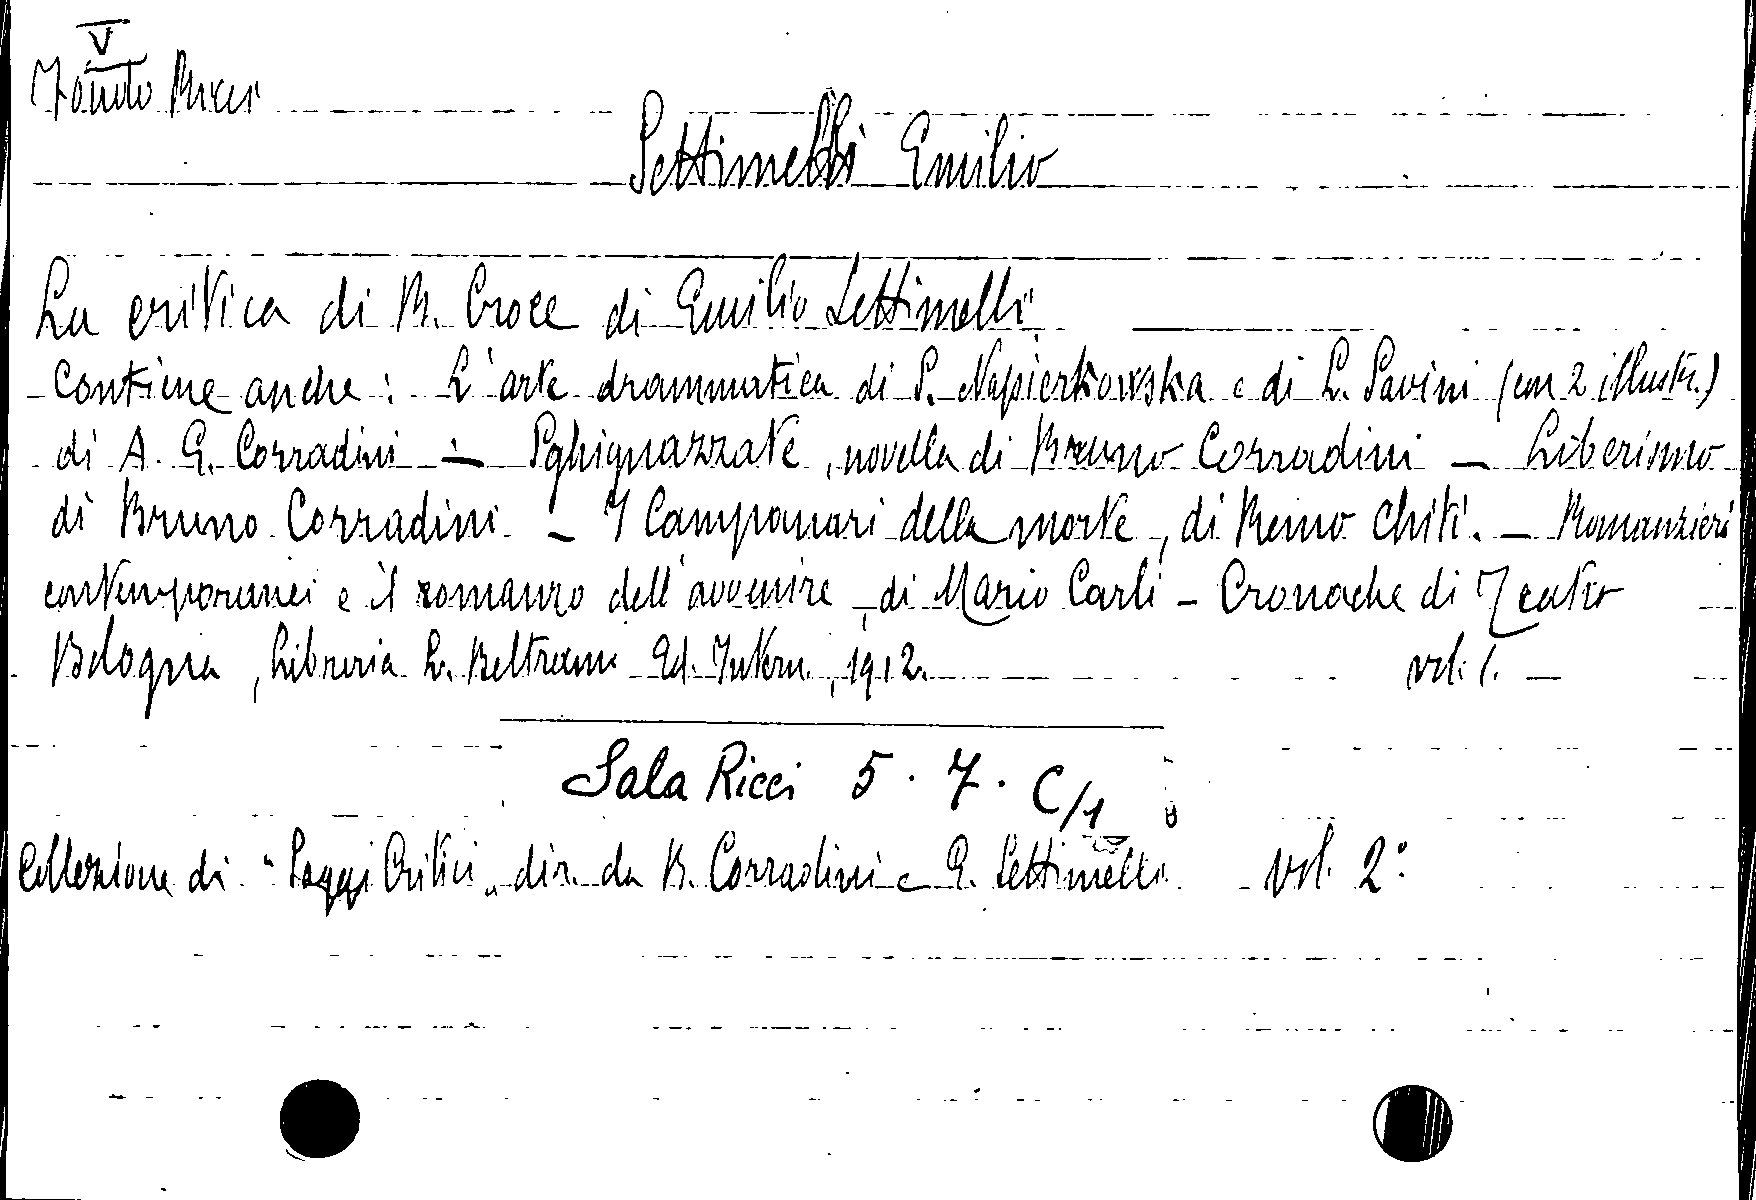 V
Fondo Ricci
Settimelli Emilio
La critica di B. Croce di Emilio Settimelli
Contiene anche: L'arte drammatica di S. Napierkowska e di L. Savini (con 2 illustr.)
di A. G. Corradini – Sghignazzate, novella di Bruno Corradini – Liberismo
di Bruno Corradini – I Campanari della morte, di Remo Chiti. – Romanzieri
contemporanei e il romanzo dell'avvenire, di Mario Carli – Cronache di Teatro
Bologna, Libreria L. Beltrami Ed. Intern., 1912. vol. 1. –
Sala Ricci 5. 7. C/1
Collezione di "Saggi Critici" dir. da B. Corradini e E. Settimelli vol. 2°